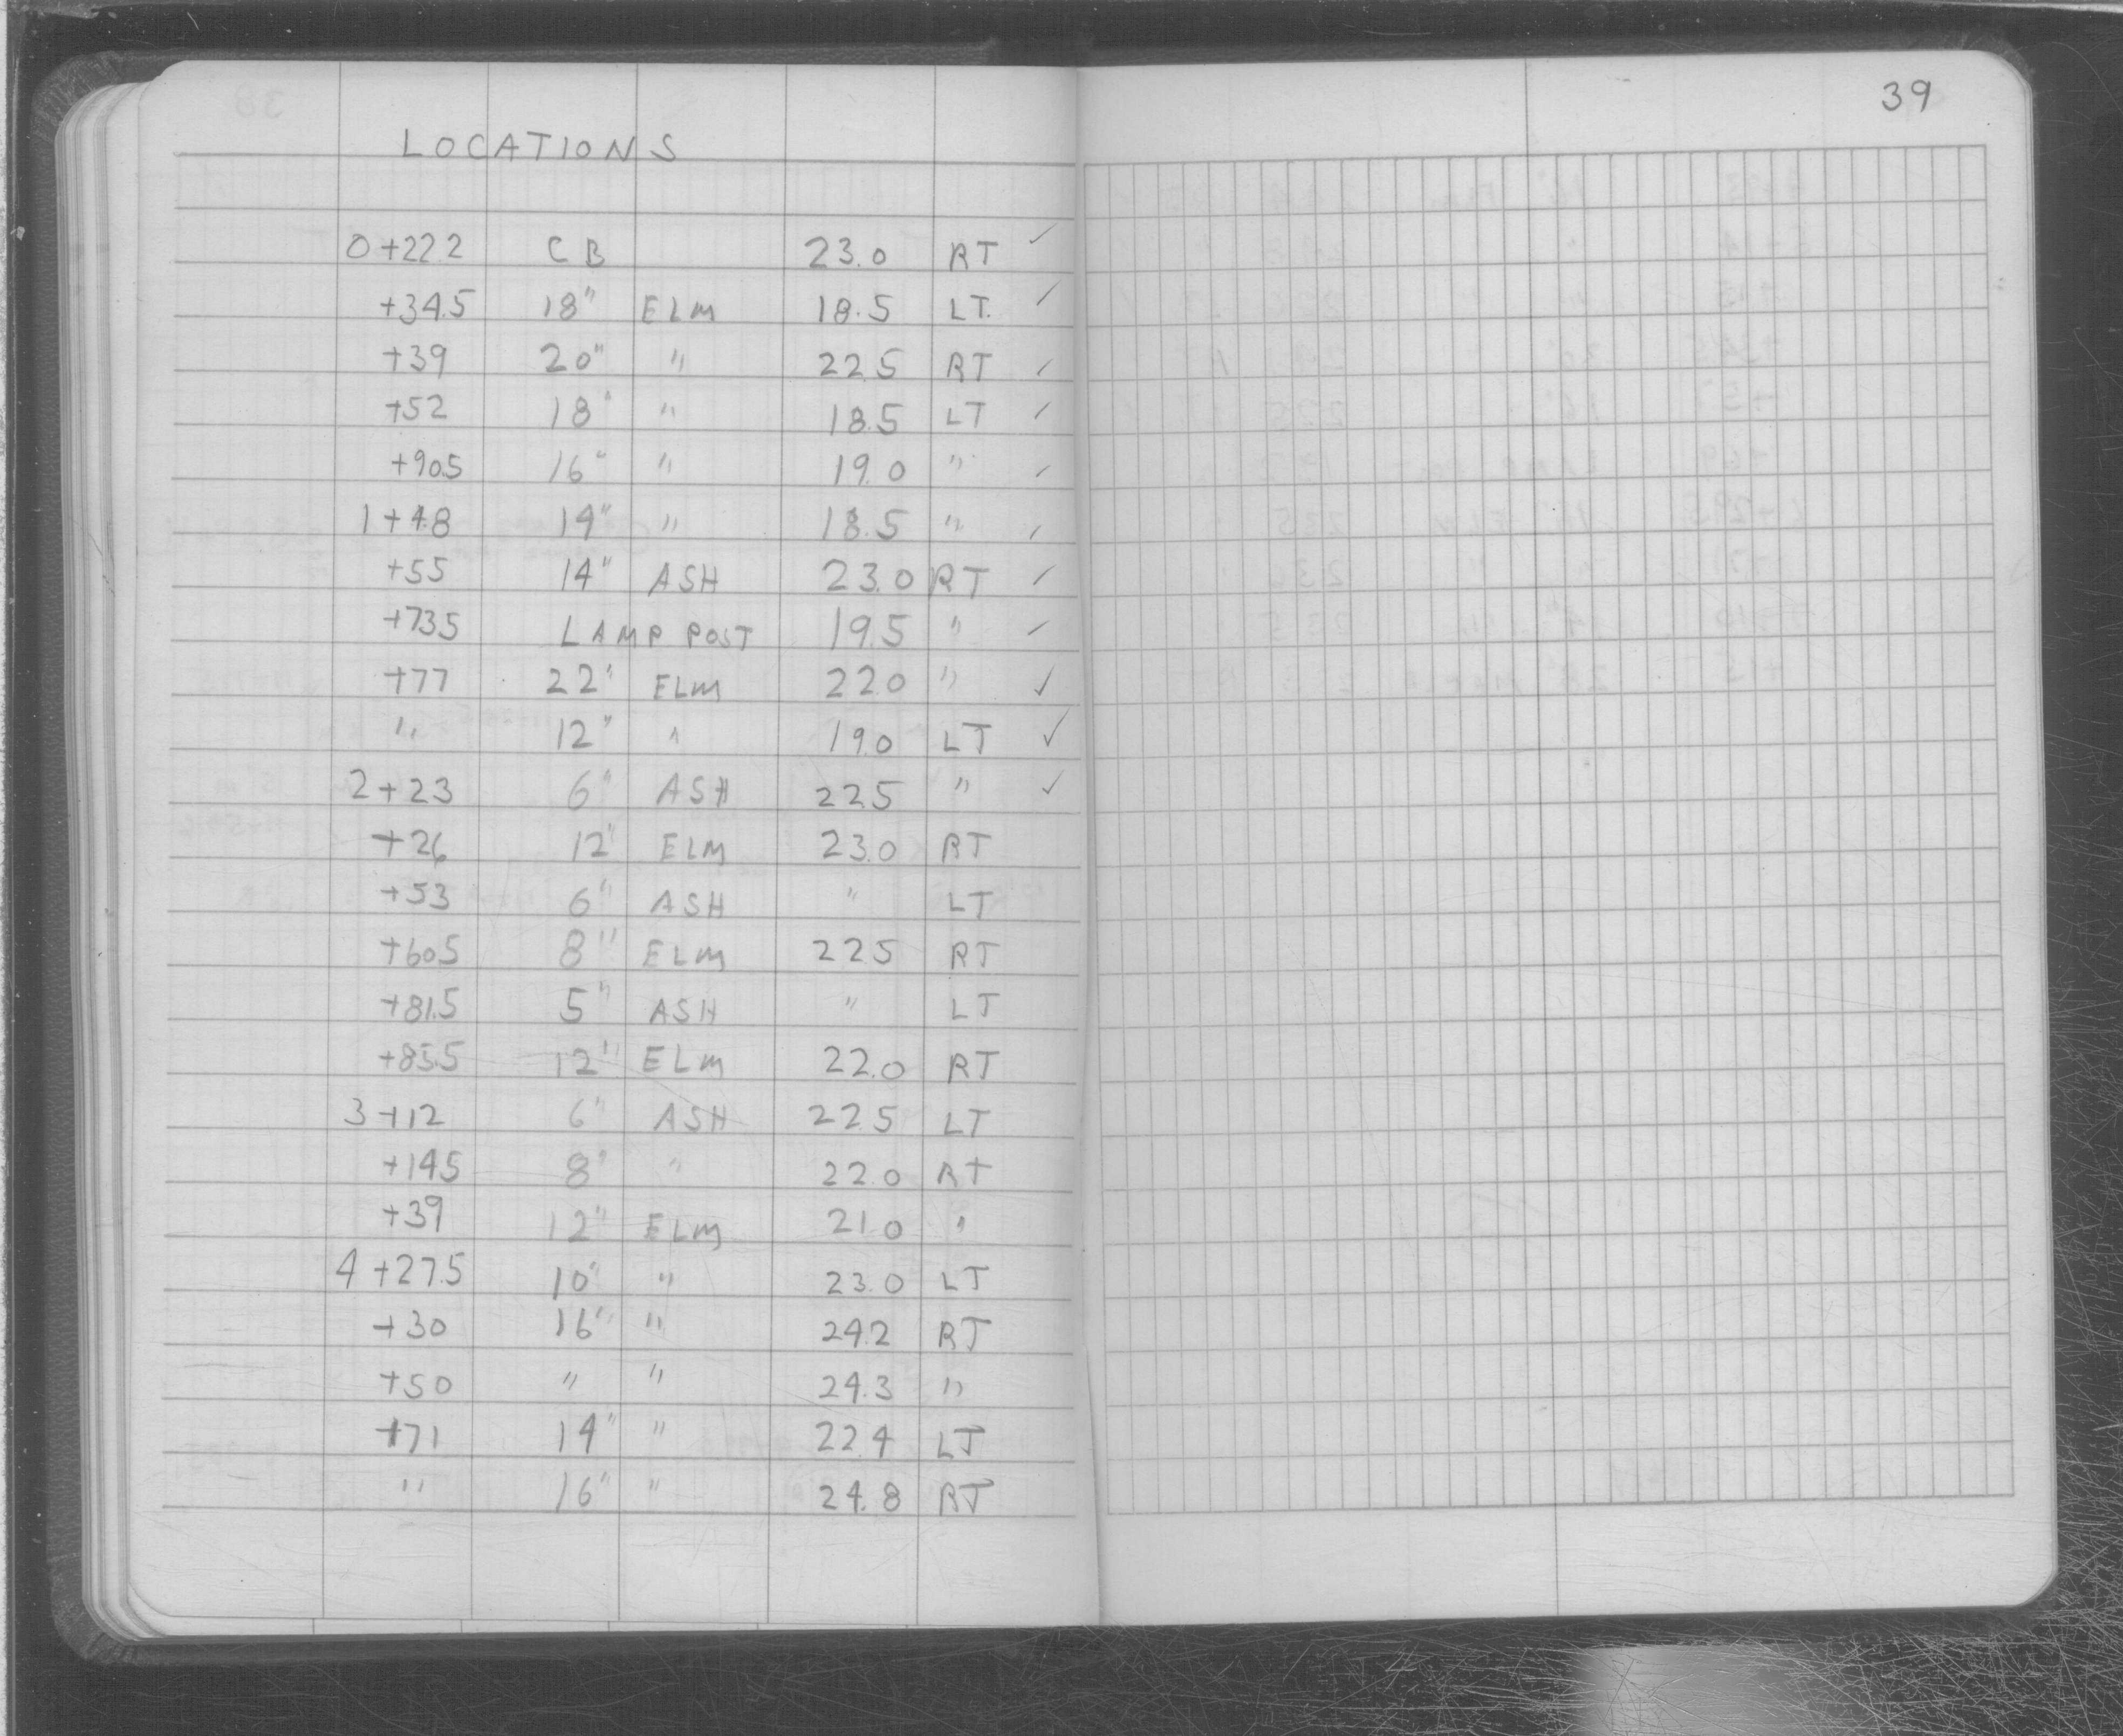 39
LOCATIONS
0+22.2 CB 23.0 RT ✓
+34.5 18" ELM 18.5 LT. ✓
+39 20" " 22.5 RT ✓
+52 18" " 18.5 LT ✓
+90.5 16" " 19.0 " ✓
1+48 14" " 18.5 " ✓
+55 14" ASH 23.0 RT ✓
+73.5 LAMP POST 19.5 " ✓
+77 22" ELM 22.0 " ✓
" 12" " 19.0 LT ✓
2+23 6" ASH 22.5 " ✓
+26 12" ELM 23.0 RT
+53 6" ASH " LT
+60.5 8" ELM 22.5 RT
+81.5 5" ASH " LT
+85.5 12" ELM 22.0 RT
3+12 6" ASH 22.5 LT
+14.5 8" " 22.0 RT
+39 12" ELM 21.0 "
4+27.5 10" " 23.0 LT
+30 16" " 24.2 RT
+50 " " 24.3 "
+71 14" " 22.4 LT
" 16" " 24.8 RT